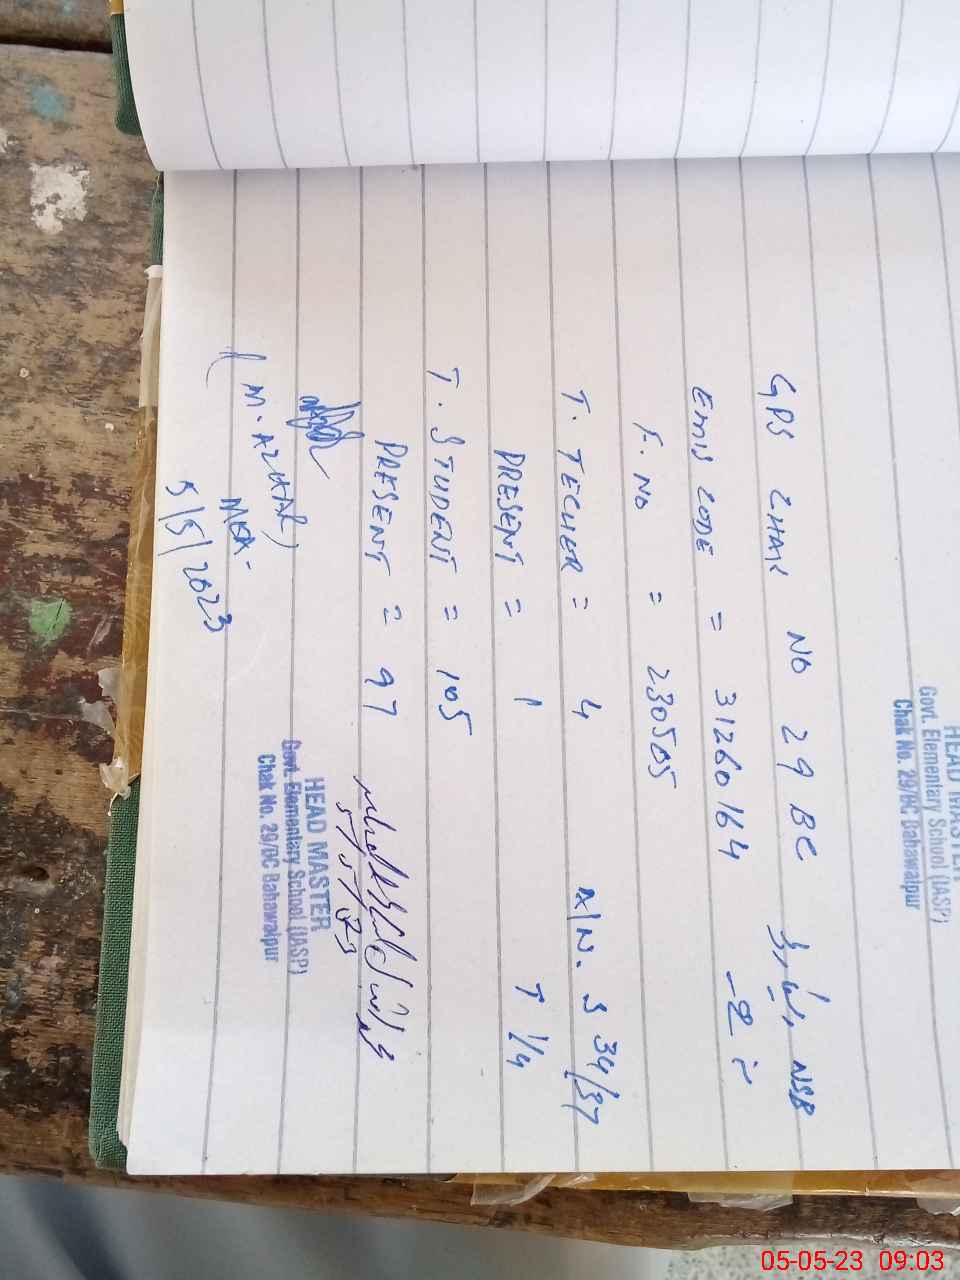 HEAD MASTER
Govt. Elementary School (IASP)
Chak No. 29/BC Bahawalpur
GPS CHAK NO 29 BC NSB
EMIS CODE = 31260164
F. NO = 230505
T. TECHER = 4 A/N. S 34/37
PRESENT = 1 T 1/4
T. STUDENT = 105
PRESENT = 97
5/5/23
(M. AZHAR)
MEA
5/5/2023
HEAD MASTER
Govt. Elementary School (IASP)
Chak No. 29/BC Bahawalpur
05-05-23 09:03